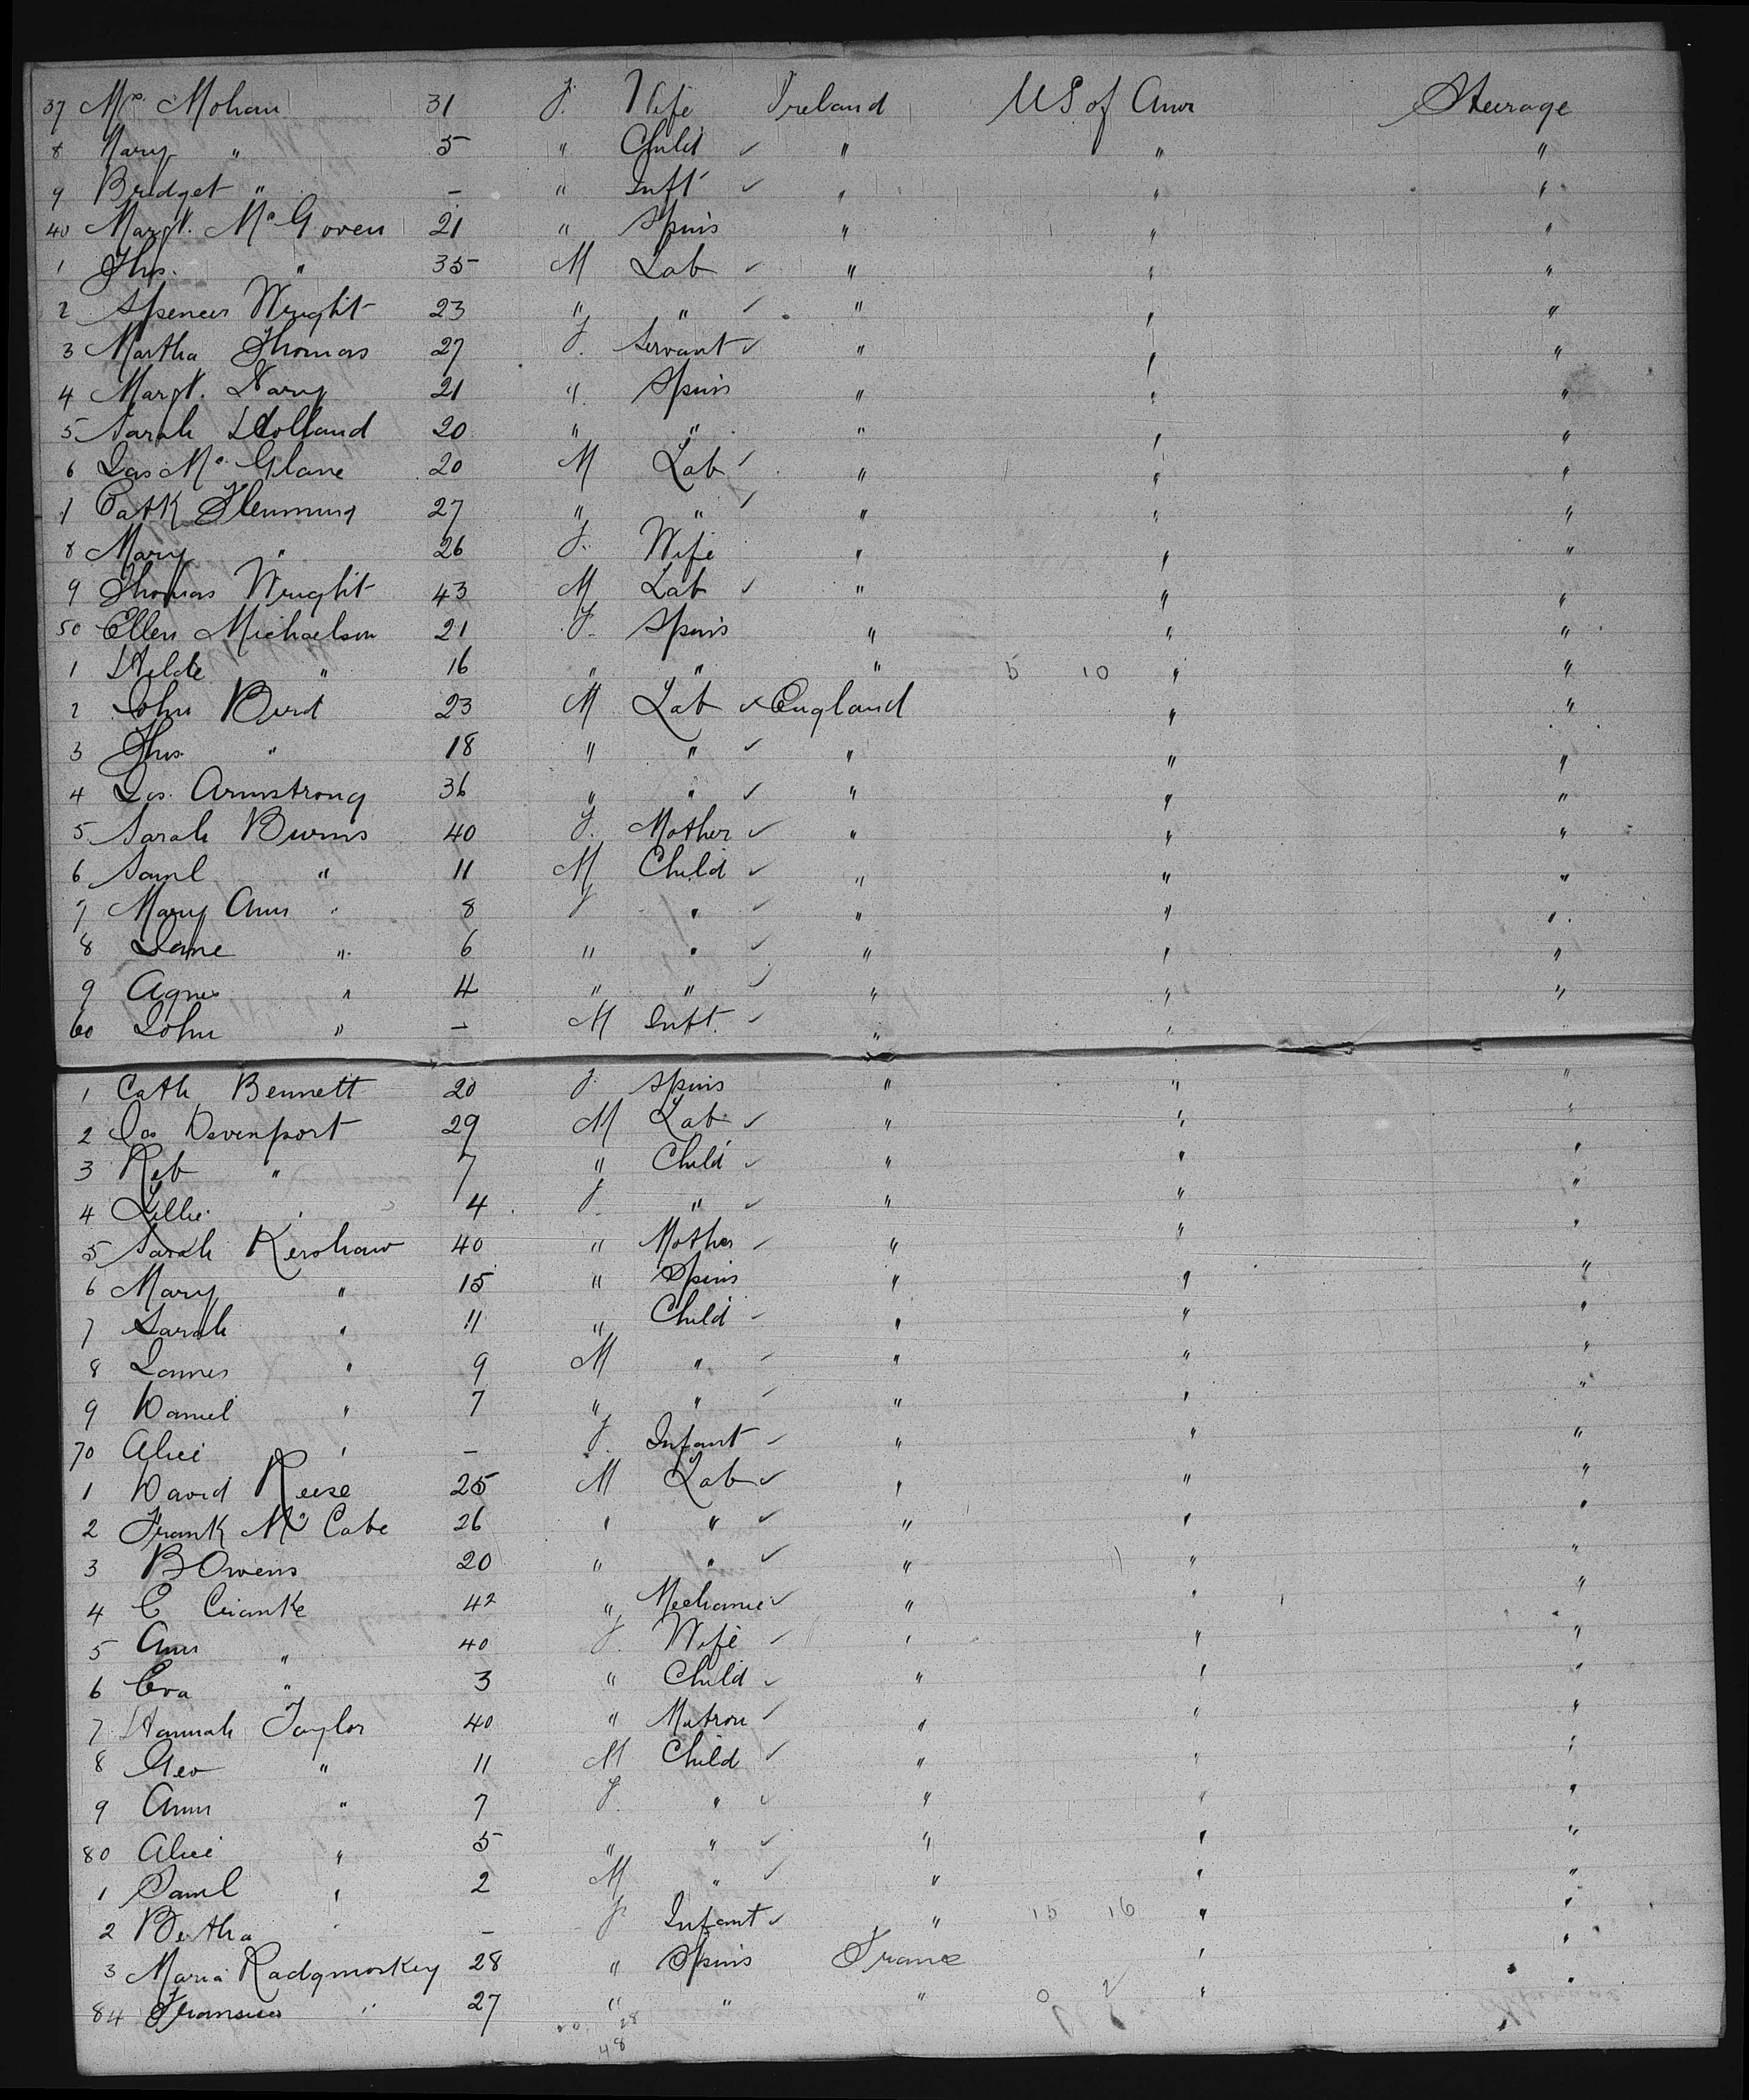 37 Mrs. Mohan 31 F. Wife Ireland US of Amr Steerage
8 Mary " 5 " Child ✓ " " "
9 Bridget " - " Inft ✓ " " "
40 Margt. McGoven 21 " Spins " " "
1 Thos. " 35 M Lab ✓ " " "
2 Spencer Wright 23 " " ✓ " " "
3 Martha Thomas 27 F. Servant ✓ " " "
4 Margt. Nary 21 " Spins " " "
5 Sarah Holland 20 " " " " "
6 Jas McGlane 20 M Lab ✓ " " "
7 Patk Flemming 27 " " ✓ " " "
8 Mary " 26 F. Wife " " "
9 Thomas Wright 43 M Lab ✓ " " "
50 Ellen Michaelson 21 F. Spins " " "
1 Hilda " 16 " " " 5 10 " "
2 John Bird 23 M Lab ✓ England " "
3 Thos " 18 " " ✓ " " "
4 Jas. Armstrong 36 " " ✓ " " "
5 Sarah Burns 40 F. Mother ✓ " " "
6 Saml " 11 M Child ✓ " " "
7 Mary Ann " 8 F " ✓ " " "
8 Jane " 6 " " ✓ " " "
9 Agnes " 4 " " ✓ " " "
60 John " - M Inft. ✓ " " "
1 Cath Bennett 20 F. Spins " " "
2 Jas Davenport 29 M Lab ✓ " " "
3 Rob " 7 " Child ✓ " " "
4 Lillie " 4 F. " ✓ " " "
5 Sarah Kershaw 40 " Mother ✓ " " "
6 Mary " 15 " Spins " " "
7 Sarah " 11 " Child ✓ " " "
8 James " 9 M " ✓ " " "
9 Daniel " 7 " " ✓ " " "
70 Alice " - F. Infant ✓ " " "
1 David Reese 25 M Lab ✓ " " "
2 Frank McCabe 26 " " ✓ " " "
3 B Owens 20 " " ✓ " " "
4 C 42 " Mechanic ✓ " " "
5 Ann " 40 F. Wife ✓ " " "
6 Eva " 3 " Child ✓ " " "
7 Hannah Taylor 40 " Matron ✓ " " "
8 Geo " 11 M Child ✓ " " "
9 Ann " 7 F. " ✓ " " "
80 Alice " 5 " " ✓ " " "
1 Saml " 2 M " ✓ " " "
2 Bertha " - F Infant ✓ " 15 16 " "
3 Maria Radgmoskey 28 " Spins France " "
84 " 27 " " " 0 2 " "
28
48